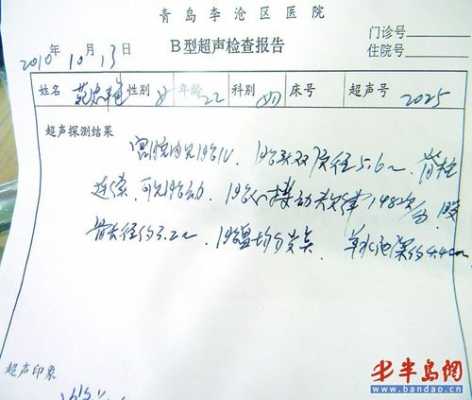 青岛李沧区医院
门诊号
B型超声检查报告
住院号
2010年10月13
姓名 性别 女 年龄 22 科别 床号 超声号 2025
超声探测结果
宫腔内见胎儿,胎头双顶径5.6cm,脊柱
连续,可见胎动,胎心搏动规律148次/分,股
骨长径约3.2cm,胎盘均匀 羊水池深约4.4cm
超声印象
半岛网
www.bandao.cn